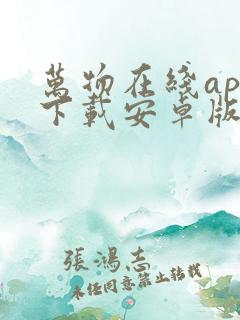 萬物在綫ap
下載安卓版
張鴻志
未經同意禁止轉載